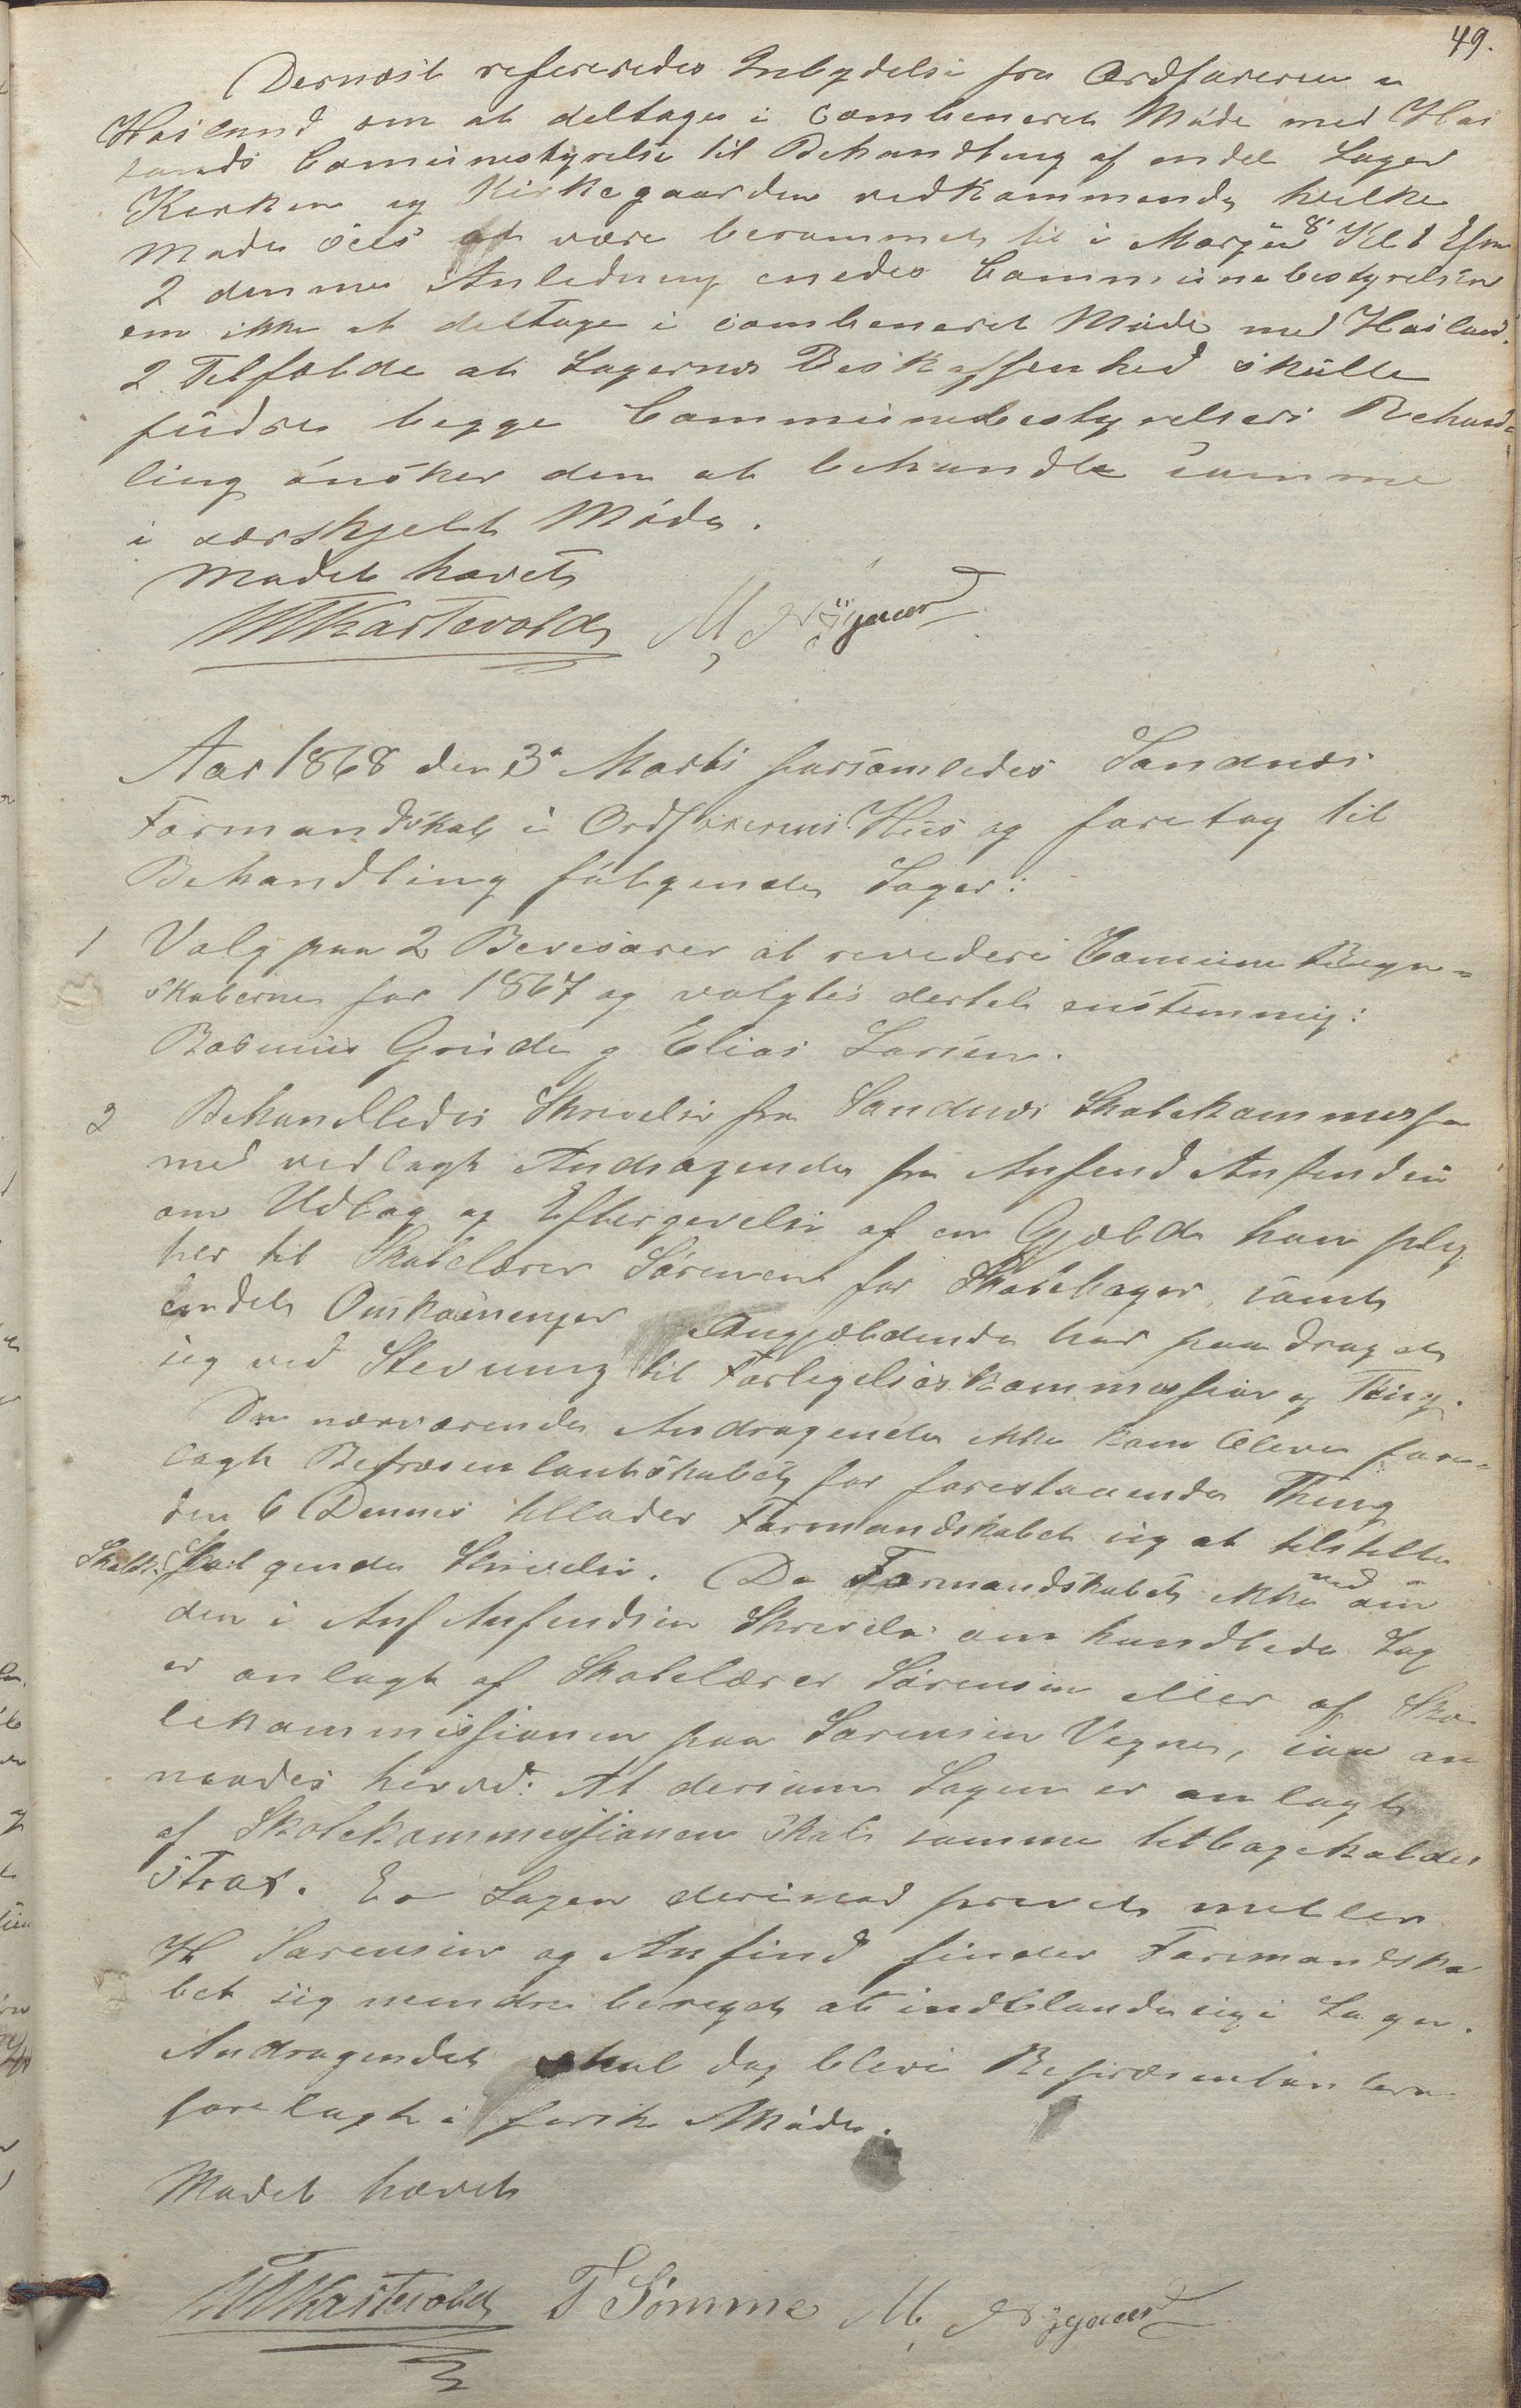 49.
Dernæst refereredes Indbydelse fra Ordføreren i
Høiland om at deltage i combeneret Møde med Høi
lands Comunestyrelse til Behandling af endel Sager
Kirken og Kirkegaarden vedkommende, hvilke
Møde sees at være berammet til i Morgen 8 Kl 1 Efm
I denne Anledning enedes Communebestyrelsen
om ikke at deltage i combeneret Møde med Høiland.
I Tilfælde at Sagernes Beskaffenhed skulle
fudre begge Communebestyrelsers Behand=
ling ønsker den at behandle samme
i særskjelt Møde.
Mødet hævet
M Kartevold M, Nygaard
Aar 1868 den 3' Marts forsamledes Sandnæs
Formandskab i Ordførerens Huus og foretog til
Behandling følgende Sager:
1 Valg paa 2 Revisorer at revidere Comune Regn=
skaberne for 1867 og valgtes dertil enstemmig:
Rasmus Grude og Elias Larsen.
2 Behandledes Skrivelse fra Sandnæs Skolekommission
med vedlagt Andragende fra Anfind Anfindsen
om Udlæg og Eftergivelse af en Gjæld han plig
ter til Skolelærer Sørensen for Skolebøger, samt
endel Omkostninger Angjældende har paadraget
sig ved Stevning til Forligelseskommission og Ting.
Da nærværende Andragende ikke kan blive fore=
lagt Repræsentantskabet for forestaaende Thing
den 6 Dennes tillader Formandskabet sig at tilstille
Skolk. følgende Skrivelse. Da Formandskabet ikke ved om
den i Anf Anfindsen Skrivelse omhandlede Sag
er anlagt af Skolelærer Sørensen eller af Sko
lekommissionen paa Sørensen Vegne, saa an
naades herved: At dersom Sagen er anlagt
af Skolekommissionen skal samme tilbagekaldes
strax. Er Sagen derimod privat mellem
H Sørensen og Anfind finder Formandska
bet sig mindre beføyet at indblande sig i Sagen.
Andragendet skal dog blive Repræsentanterne
forelagt i første Møde.
Mødet hævet
M Kartevold T Sømme M, Nygaard